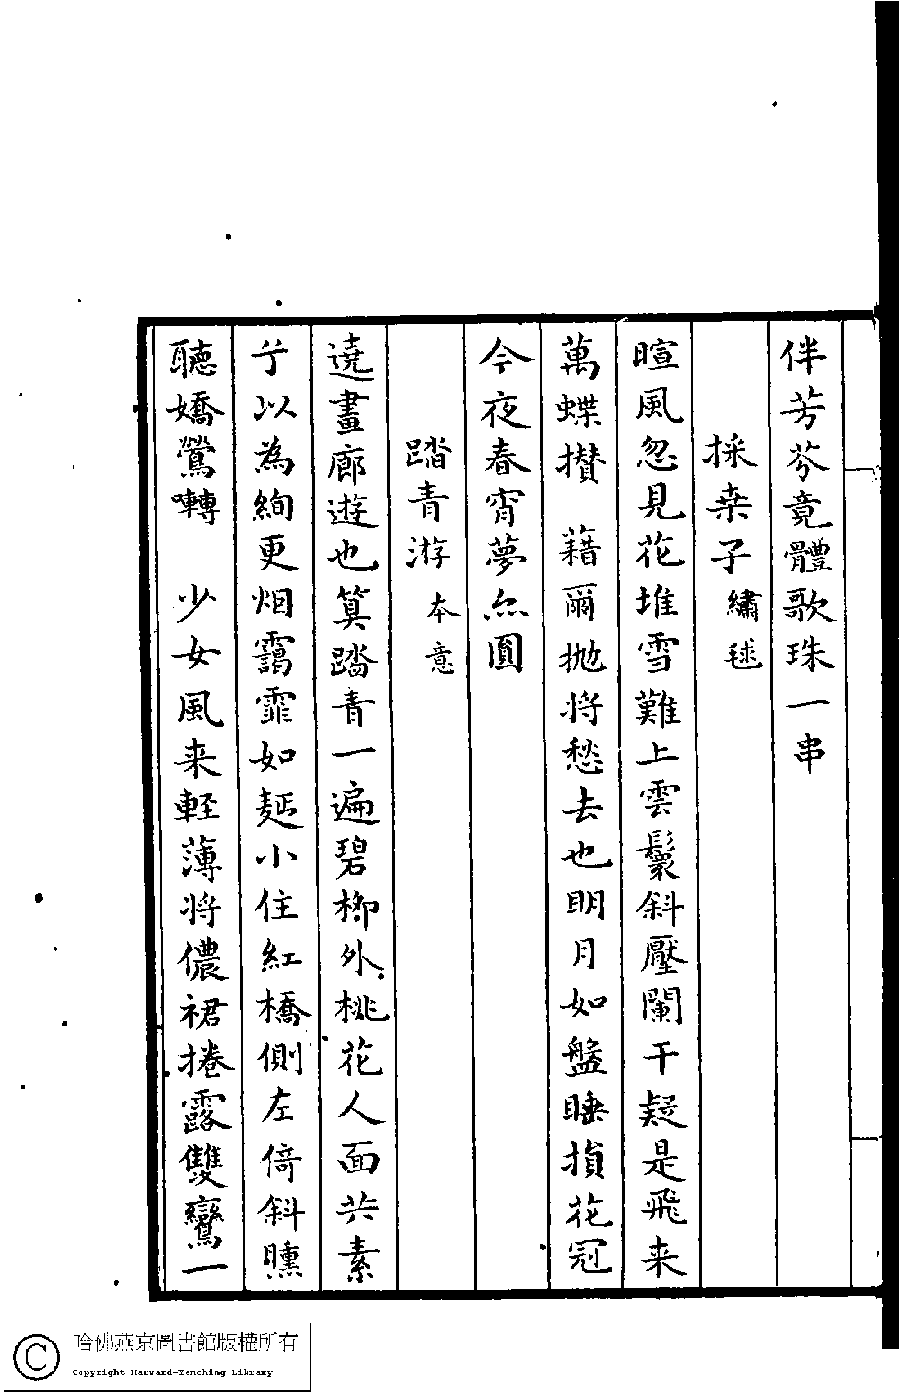 伴芳芬竟體歌珠一串
採桒子 繡毬
暄風忽見花堆雪難上雲鬟斜壓闌干疑是飛来
萬蝶攅 藉爾抛将愁去也明月如盤睡損花冠
今夜春宵夢点圓
踏青游 本意
遶畫廊遊也算踏青一遍碧栁外桃花人面共素
以為絢更烟靄霏如麫小住紅橋側左倚斜曛
聽嬌鶯囀 少女風来軽薄将儂裙捲露雙鸞一
哈佛燕京圖書館版權所有
Copyright Harvard-Yenching Library